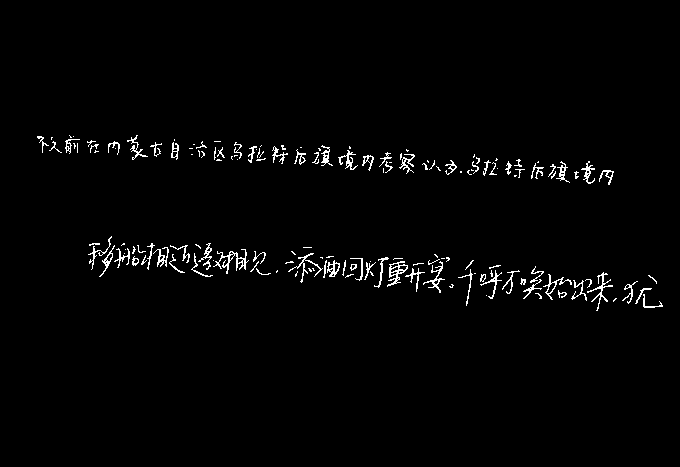 前在内蒙古自治区乌拉特后旗境内考察认为乌拉特后旗境内
移船相近邀相见,添酒回灯重开宴。千呼万唤始出来,犹